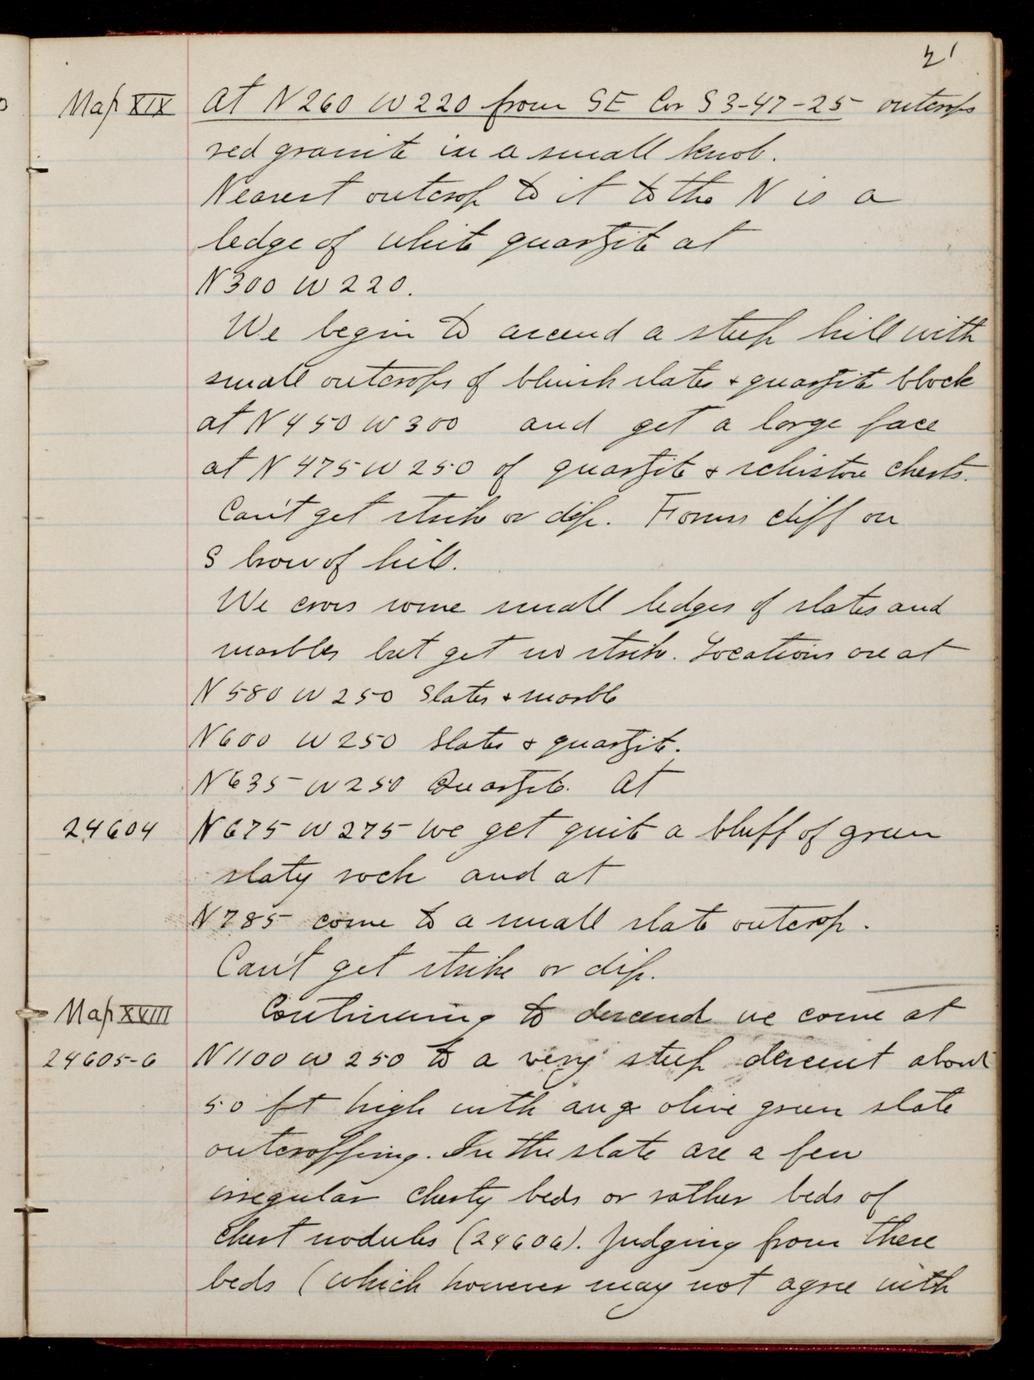 21
Map XIX At N260 W220 from SE Cor S3-47-25 outcrops
red granite in a small knob.
Nearest outcrop to it to the N is a
ledge of white quartzite at
N300 W220.
We begin to ascend a steep hill with
small outcrops of bluish slates + quartzite block
at N450 W300 and get a large face
at N475 W250 of quartzite + schistose cherts.
Can't get strike or dip. Forms cliff on
S brow of hill.
We cross some small ledges of slates and
marbles but get no strike. Locations are at
N580 W250 Slates + marble
N600 W250 Slates + quartzite.
N635 W250 Quartzite. At
24604 N675 W275 we get quite a bluff of green
slaty rock and at
N785 come to a small slate outcrop.
Can't get strike or dip.
Map XVIII Continuing to descend we come at
24605-6 N1100 W250 to a very steep descent about
50 ft high with an olive green slate
outcropping. In the slate are a few
irregular cherty beds or rather beds of
chert nodules (24606). Judging from these
beds (which however may not agree with